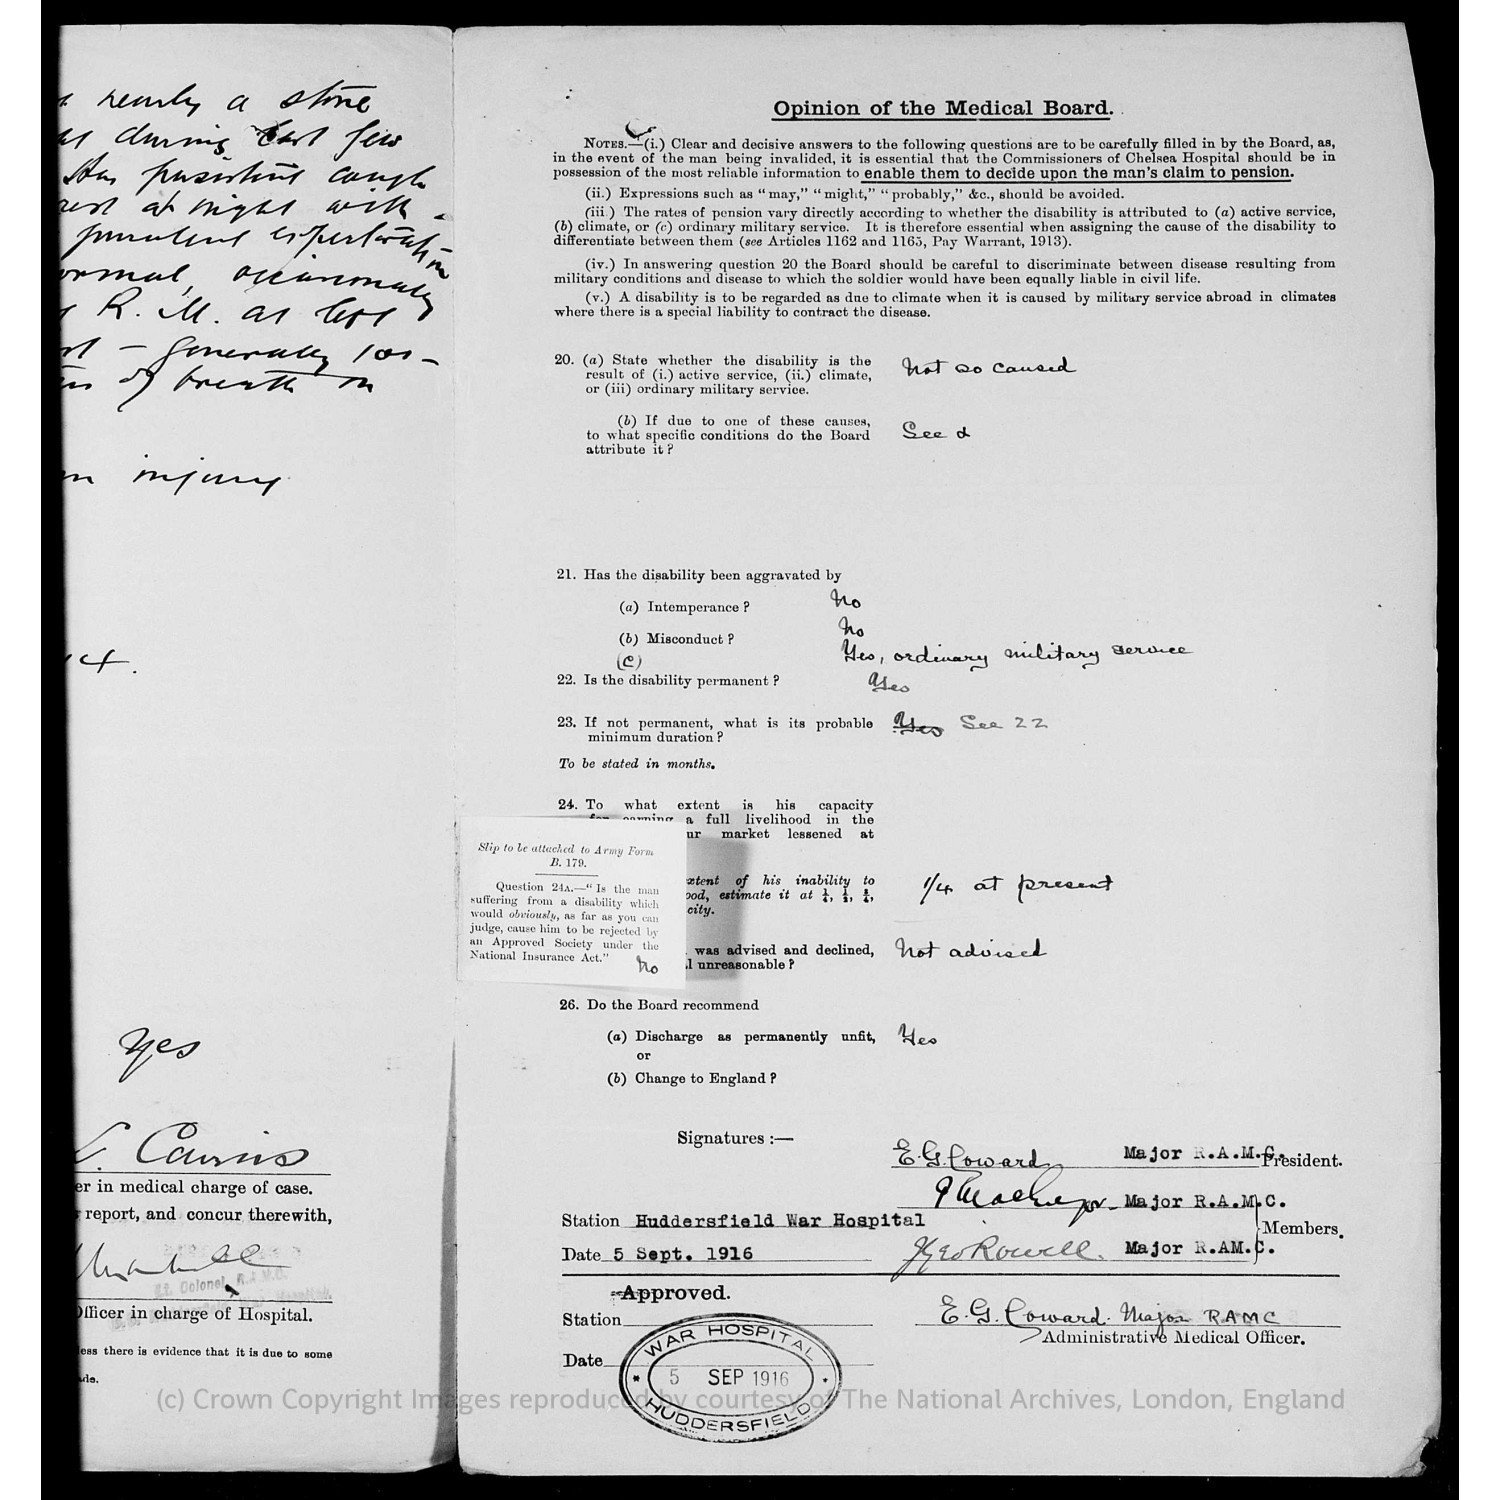 nearly a stone
during last few
Has persistent cough
rest at night with
purulent expectoration
normal, occasionally
R. M. at left
generally
of breath on
injury
14.
Yes
Cairns
er in medical charge of case.
report, and concur therewith,
Lt. Colonel, R.A.M.C.
Officer in charge of Hospital.
less there is evidence that it is due to some
Opinion of the Medical Board.
NOTES.—(i.) Clear and decisive answers to the following questions are to be carefully filled in by the Board, as,
in the event of the man being invalided, it is essential that the Commissioners of Chelsea Hospital should be in
possession of the most reliable information to enable them to decide upon the man's claim to pension.
(ii.) Expressions such as “may,” “might,” “probably,” &c., should be avoided.
(iii.) The rates of pension vary directly according to whether the disability is attributed to (a) active service,
(b) climate, or (c) ordinary military service. It is therefore essential when assigning the cause of the disability to
differentiate between them (see Articles 1162 and 1165, Pay Warrant, 1913).
(iv.) In answering question 20 the Board should be careful to discriminate between disease resulting from
military conditions and disease to which the soldier would have been equally liable in civil life.
(v.) A disability is to be regarded as due to climate when it is caused by military service abroad in climates
where there is a special liability to contract the disease.
20. (a) State whether the disability is the
result of (i.) active service, (ii.) climate,
or (iii) ordinary military service.
Not so caused
(b) If due to one of these causes,
to what specific conditions do the Board
attribute it?
See a
21. Has the disability been aggravated by
(a) Intemperance? No
(b) Misconduct? No
(c) Yes, ordinary military service
22. Is the disability permanent? Yes
23. If not permanent, what is its probable
minimum duration?
Yes See 22
To be stated in months.
24. To what extent is his capacity
for earning a full livelihood in the
ur market lessened at
xtent of his inability to
ood, estimate it at ¼, ½, ¾,
city.
1/4 at present
Slip to be attached to Army Form
B. 179.
Question 24A.—“Is the man
suffering from a disability which
would obviously, as far as you can
judge, cause him to be rejected by
an Approved Society under the
National Insurance Act.”
No
was advised and declined,
l unreasonable?
Not advised
26. Do the Board recommend
(a) Discharge as permanently unfit, Yes
or
(b) Change to England?
Signatures:—
E. G. Coward Major R.A.M.C. President.
Major R.A.M.C.
Station Huddersfield War Hospital
Members.
Date 5 Sept. 1916
Geo Rowell. Major R.AM.C.
Approved.
Station
E. G. Coward. Major RAMC
Administrative Medical Officer.
Date
WAR HOSPITAL
5 SEP 1916
HUDDERSFIELD
(c) Crown Copyright Images reproduced by courtesy of The National Archives, London, England